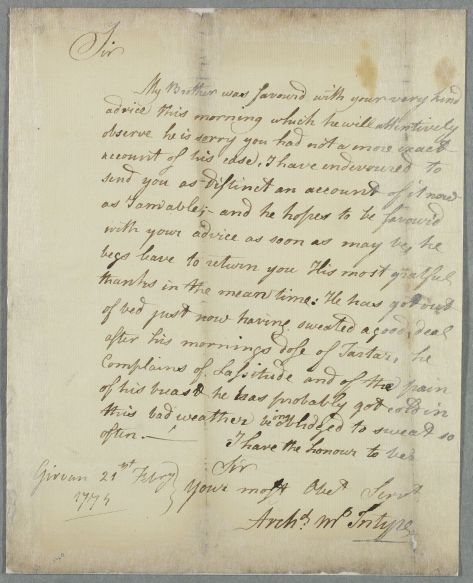 Sir
My Brother was favourd with your very kind
advice this morning which he will attentively
observe he is sorry you had not a more exact
account of his case. I have endevoured to
send you as Distinct an account of it now
as I am able; - and he hopes to be favourd
with your advice as soon as may be, he
begs leave to return you His most grateful
thanks in the mean time: He has got out
of bed just now having sweated a good deal
after his mornings dose of Tartar, he
Complains of Lassitude and of the pain
of his breast he has probably got cold in
this bad weather being obliidged to sweat so
often. -
I have the honour to be
Sir
Your most Obet Servt
Archd McIntyre
Girvan 21st Febry
1774